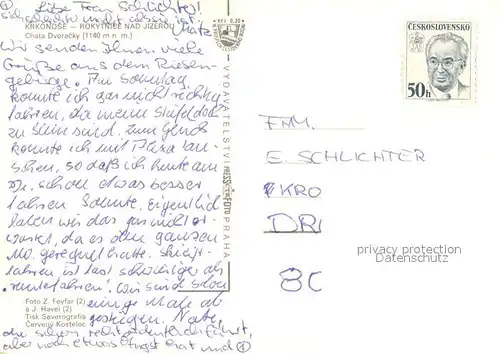 ① Liebe Frau Schlichter!
KRKONOŠE — ROKYTNICE NAD JIZEROU
Chata Dvoračky (1140 m n. m.)
Wir senden Ihnen viele
Grüße aus dem Riesen-
gebirge. Am Sonntag
konnte ich gar nicht richtig
fahren, da meine Stiefel doch
zu klein sind. Zum Glück
konnte ich mit
schen, so daß ich heute am
schon etwas besser
fahren konnte. Eigentlich
haben wir das gar nicht er-
wartet, da es den ganzen
Mo. geregnet hatte.
fahren ist fast schwieriger als
"runterfahren". Wir sind schon
einige Male
gestiegen.
Foto Z. Feyfar (2)
a J. Havel (2)
Tisk Severografia
Červený Kostelec
die schon recht ordentlich fährt,
aber noch etwas Angst hat und ①
Kčs 0,20
VYDAVATELSTVÍ PRESSFOTO PRAHA
ČESKOSLOVENSKO
50h
FAM.
E. SCHLICHTER
KRO
DRE
80
privacy protection
Datenschutz